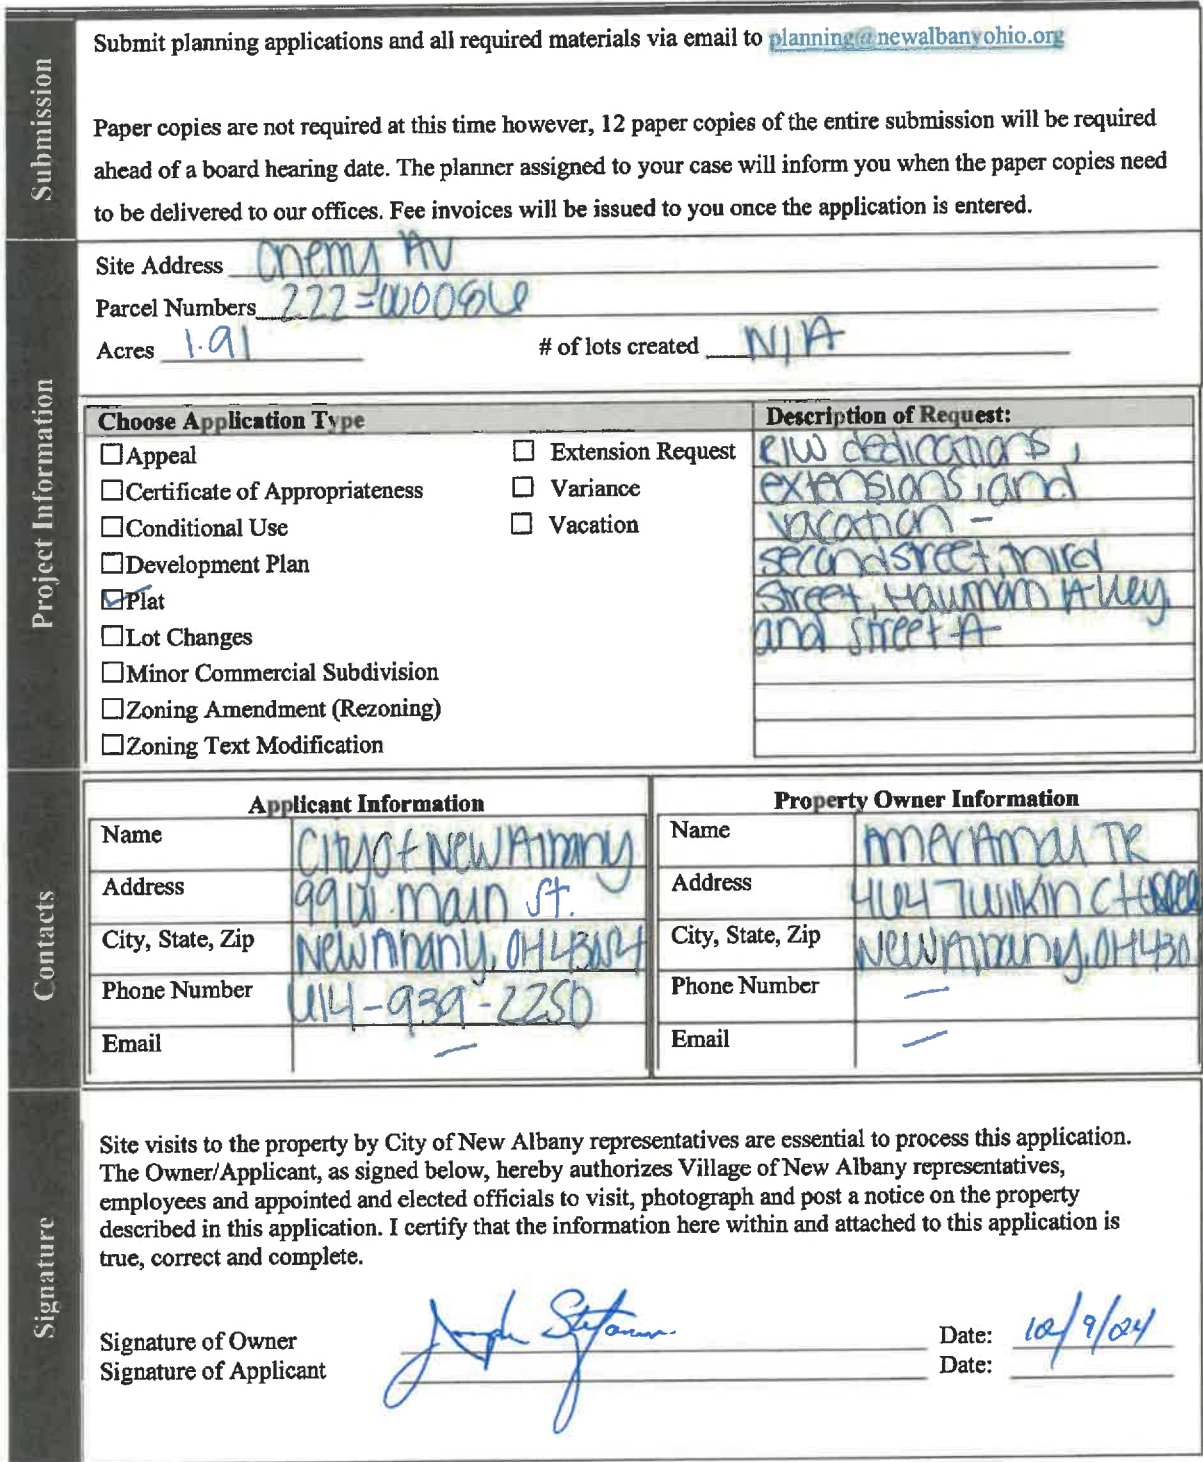 Submission
Submit planning applications and all required materials via email to planning@newalbanyohio.org
Paper copies are not required at this time however, 12 paper copies of the entire submission will be required
ahead of a board hearing date. The planner assigned to your case will inform you when the paper copies need
to be delivered to our offices. Fee invoices will be issued to you once the application is entered.
Project Information
Site Address
Parcel Numbers 222-
Acres 1.91 # of lots created N/A
Choose Application Type
☐ Appeal
☐ Certificate of Appropriateness
☐ Conditional Use
☐ Development Plan
☑ Plat
☐ Lot Changes
☐ Minor Commercial Subdivision
☐ Zoning Amendment (Rezoning)
☐ Zoning Text Modification
☐ Extension Request
☐ Variance
☐ Vacation
Description of Request:
R/W dedications,
extensions, and
vacation -
second street, third
street, Hauman Alley,
and street A
Contacts
Applicant Information
Name City of New Albany
Address 99 W. Main St.
City, State, Zip New Albany, OH 43054
Phone Number 614-939-2250
Email —
Property Owner Information
Name TR
Address
City, State, Zip New Albany, OH 430
Phone Number —
Email —
Signature
Site visits to the property by City of New Albany representatives are essential to process this application.
The Owner/Applicant, as signed below, hereby authorizes Village of New Albany representatives,
employees and appointed and elected officials to visit, photograph and post a notice on the property
described in this application. I certify that the information here within and attached to this application is
true, correct and complete.
Signature of Owner Joseph Stefanov Date: 10/9/24
Signature of Applicant Date: